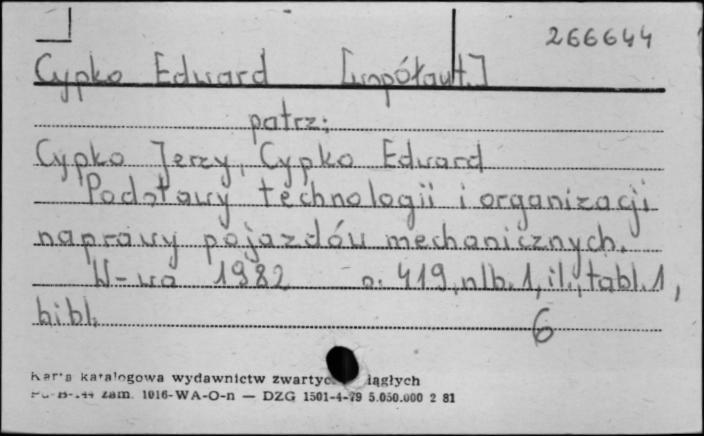 266644
Cypko Edward [współaut.]
patrz:
Cypko Jerzy, Cypko Edward
Podstawy technologii i organizacji
naprawy pojazdów mechanicznych.
W-wa 1982 s. 419, nlb. 1, il., tabl. 1,
bibl.
6
Karta katalogowa wydawnictw zwartyc iągłych
zam. 1016-WA-O-n — DZG 1501-4-79 5.050.000 2 81